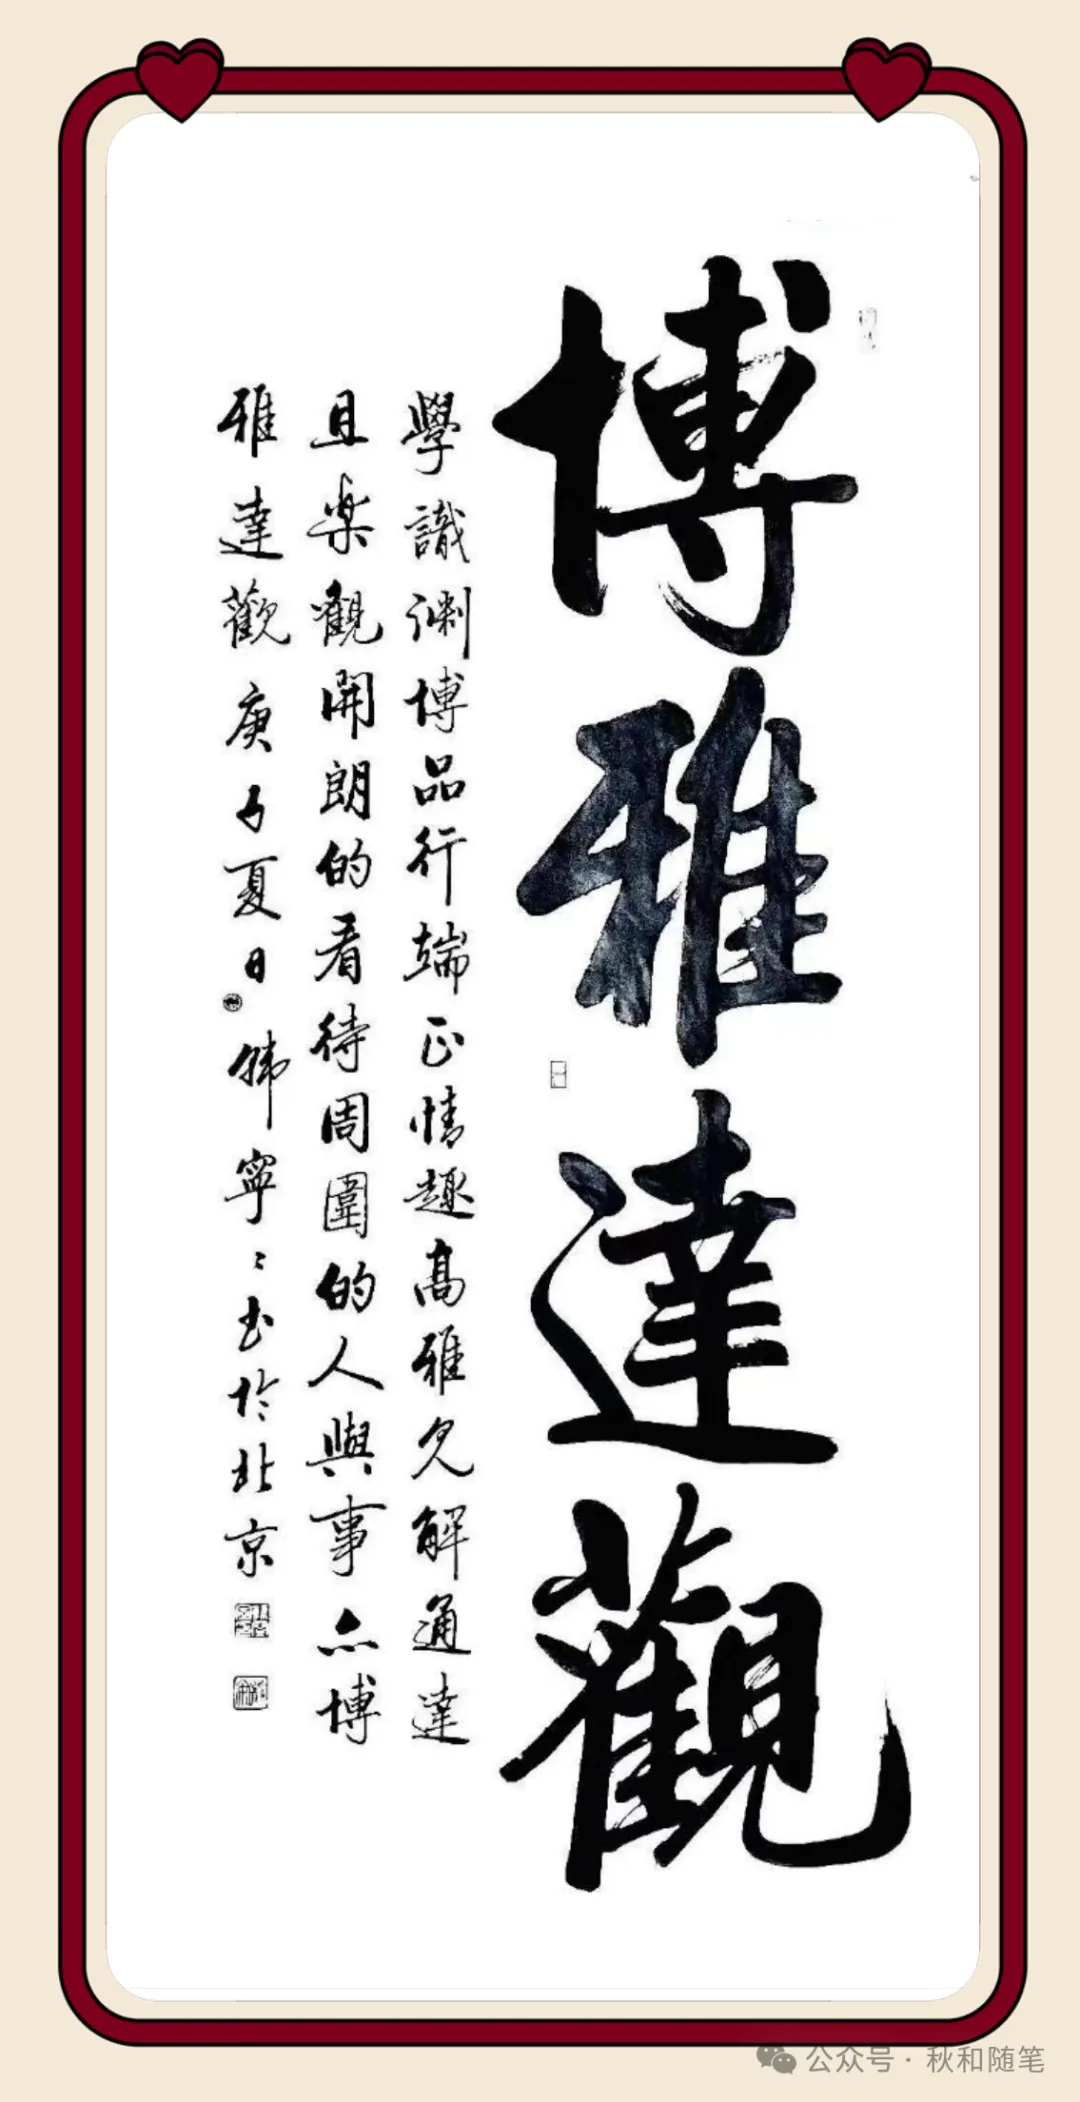 博雅達觀
學識渊博品行端正情趣高雅见解通達
且楽觀開朗的看待周圍的人與事亦博
雅達觀庚子夏日韩寧〻书於北京
公众号 · 秋和随笔